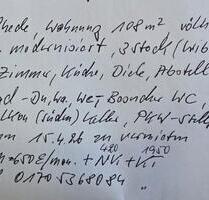 Rhede, Wohnung 108 m² völl
modernisiert, 3 stock (Wib
Zimmer, Küche, Diele, Abstell
ad - Du, Wa, WC, Besucher WC,
lkon (Süden) Keller, PKW-Stell
m 15.4.26 zu vermieten
650 €/mon. + NK 420 + KT 1950
0170 5368084 "